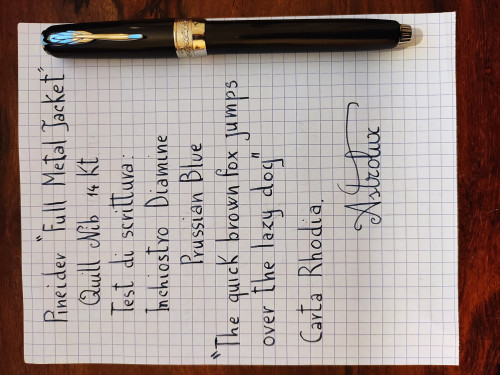 Pineider "Full Metal Jacket"
Quill Nib 14 Kt
Test di scrittura:
Inchiostro Diamine
Prussian Blue
"The quick brown fox jumps
over the lazy dog"
Carta Rhodia.
Astrolux